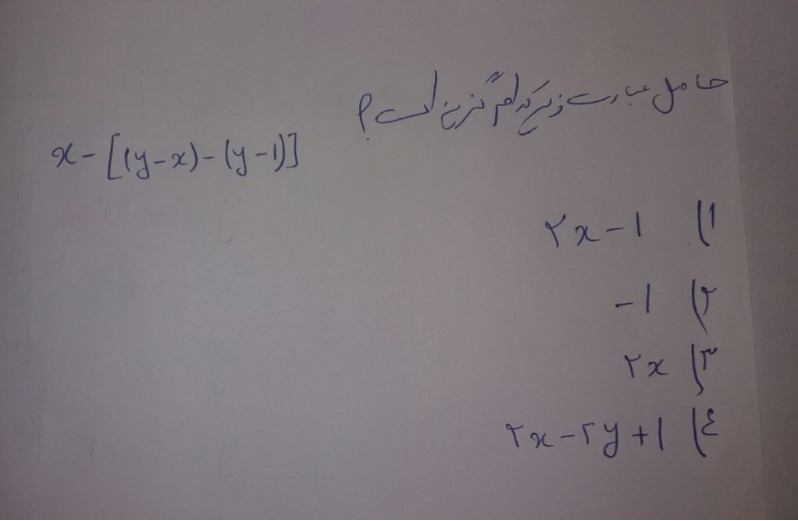 حاصل عبارت زیر کدام گزینه است؟
x - [(y-x) - (y-1)]
۱) ۲x - ۱
۲) -۱
۳) ۲x
٤) ۲x - ۲y + ۱